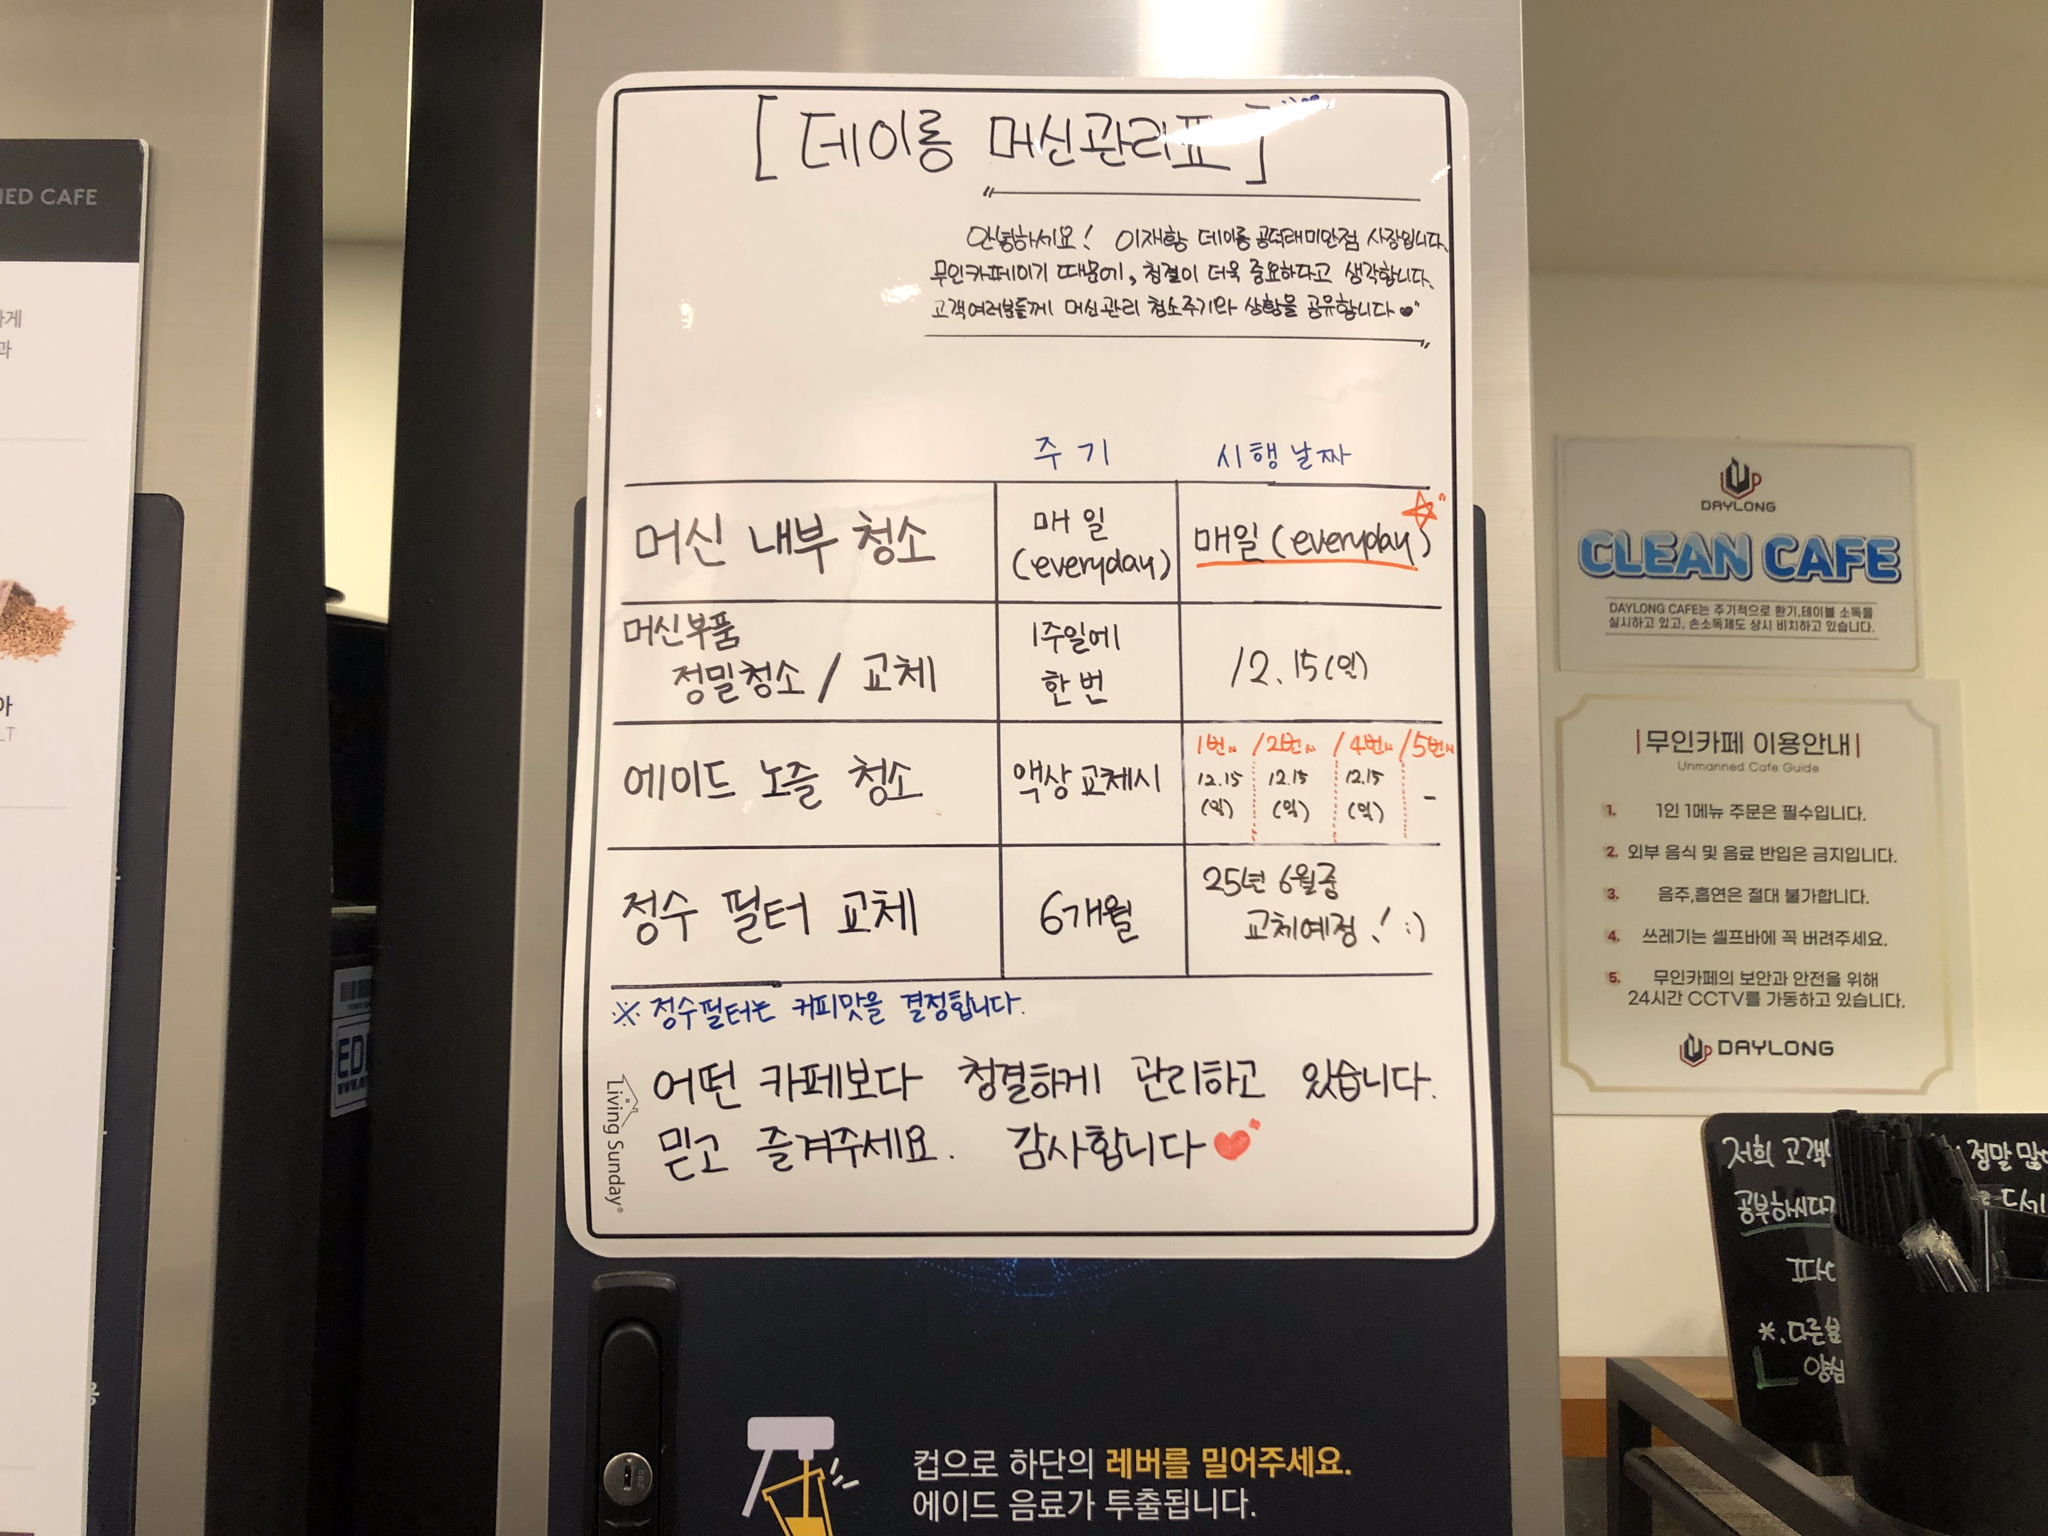 [ 데이롱 머신관리표 ]
안녕하세요! 이재황 데이롱 공덕래미안점 사장입니다.
무인카페이기 때문에, 청결이 더욱 중요하다고 생각합니다.
고객여러분들께 머신관리 청소주기와 상황을 공유합니다
주기 시행날짜
머신 내부 청소 매일 (everyday) 매일 (everyday)
머신부품
정밀청소 / 교체 1주일에 한번 12.15(일)
에이드 노즐 청소 액상교체시 1번 / 2번 / 4번 / 5번
12.15 12.15 12.15 -
(일) (일) (일)
정수 필터 교체 6개월 25년 6월중
교체예정! :)
※ 정수필터는 커피맛을 결정합니다.
어떤 카페보다 청결하게 관리하고 있습니다.
믿고 즐겨주세요. 감사합니다
Living Sunday
컵으로 하단의 레버를 밀어주세요.
에이드 음료가 투출됩니다.
CAFE
DAYLONG
CLEAN CAFE
DAYLONG CAFE는 주기적으로 환기,테이블 소독을
실시하고 있고, 손소독제도 상시 비치하고 있습니다.
무인카페 이용안내
Unmanned Cafe Guide
1. 1인 1메뉴 주문은 필수입니다.
2. 외부 음식 및 음료 반입은 금지입니다.
3. 음주,흡연은 절대 불가합니다.
4. 쓰레기는 셀프바에 꼭 버려주세요.
5. 무인카페의 보안과 안전을 위해
24시간 CCTV를 가동하고 있습니다.
DAYLONG
저희 정말